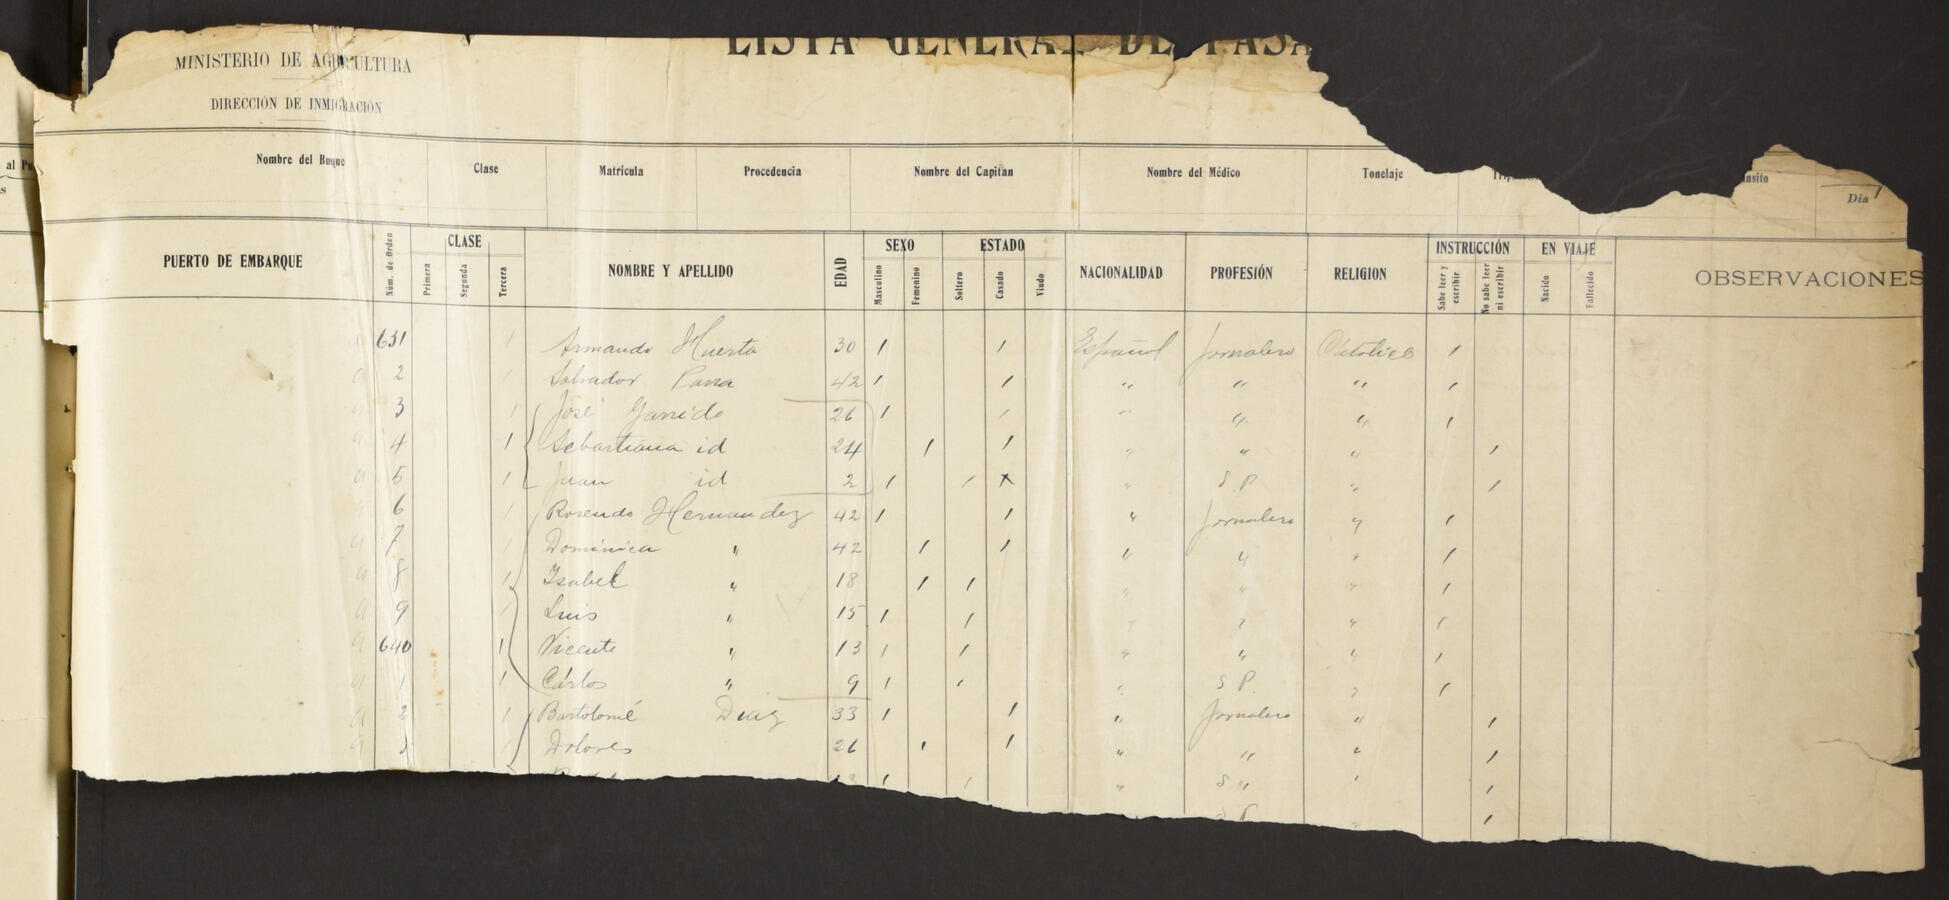 LISTA GENERAL DE PASA
MINISTERIO DE AGRICULTURA
DIRECCIÓN DE INMIGRACIÓN
al Pu
s
Nombre del Buque Clase Matrícula Procedencia Nombre del Capitan Nombre del Médico Tonelaje Trip nsito
Dia
PUERTO DE EMBARQUE Núm. de Orden CLASE Primera Segunda Tercera NOMBRE Y APELLIDO EDAD SEXO Masculino Femenino ESTADO Soltero Casado Viudo NACIONALIDAD PROFESIÓN RELIGION INSTRUCCIÓN Sabe leer y escribir No sabe leer ni escribir EN VIAJE Nacido Fallecido OBSERVACIONES
631 1 Armando Huerta 30 1 1 Español Jornalero Católico 1
2 1 Salvador Parra 42 1 1 " " " 1
3 1 José Garrido 26 1 1 " " " 1
4 1 Sebastiana id 24 1 1 " " " 1
5 1 Juan id 2 1 1 x " S P. " 1
6 1 Rosendo Hernandez 42 1 1 " Jornalero " 1
7 1 Dominica " 42 1 1 " " " 1
8 1 Isabel " 18 1 1 " " " 1
9 1 Luis " 15 1 1 " " " 1
640 1 Vicente " 13 1 1 " " " 1
1 1 Cárlos " 9 1 1 " S P. " 1
2 1 Bartolomé Diaz 33 1 1 " Jornalero " 1
3 1 Dolores 26 1 1 " " " 1
13 1 1 " S " " 1
P " 1